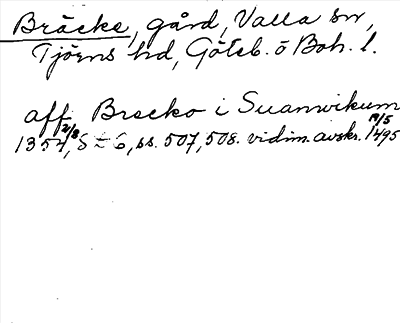 Bräcke, gård, Valla sn,
Tjörns hd, Göteb. o Boh. l.
aff Brecko i Suanwikum
1354 2/8, S = 6, ss. 507, 508. vidim. avskr. 19/5 1495